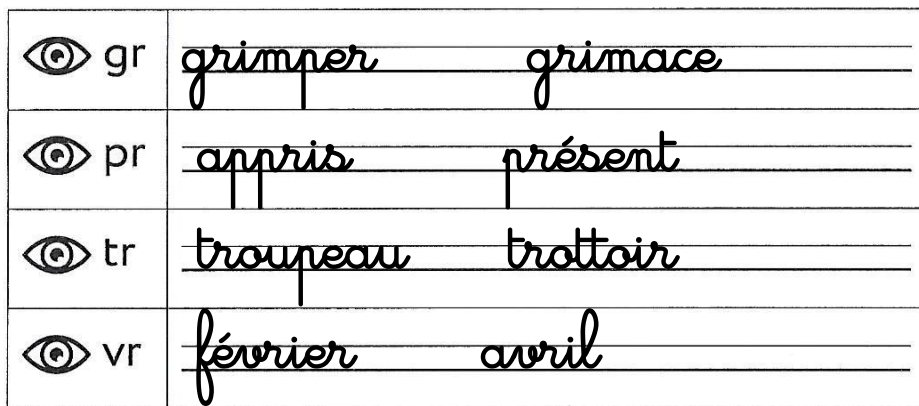 gr grimper grimace
pr appris présent
tr troupeau trottoir
vr février avril